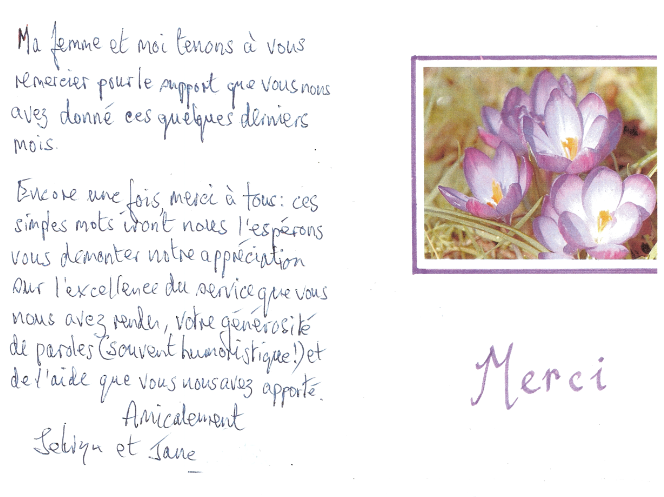 Ma femme et moi tenons à vous
remercier pour le support que vous nous
avez donné ces quelques derniers
mois.
Encore une fois, merci à tous: ces
simples mots iront nous l'espérons
vous démonter notre appréciation
sur l'excellence du service que vous
nous avez rendu, votre générosité
de paroles (souvent humoristique!) et
de l'aide que vous nous avez apporté.
Amicalement
et Jane
Merci